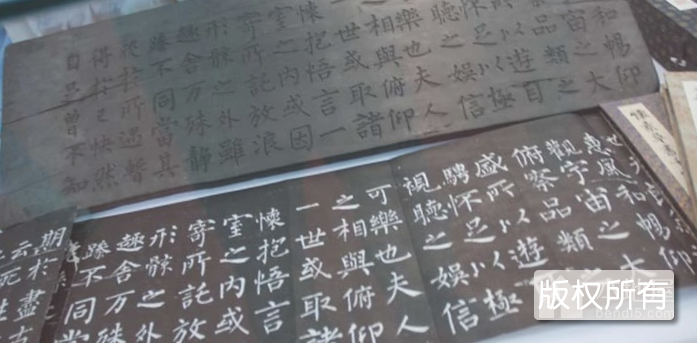 和暢仰
宙之大
品類之
以遊目
懷足以極
聽之娛信
樂也夫人
相與俯仰
一世或取諸
懷抱悟言一
室之内或因
寄所託放浪
形骸之外雖
趣舍万殊静
躁不同當其
於所遇暫
得於己快然
自足曾不知
惠風和暢仰
觀宇宙之大
俯察品類
盛所以遊
騁懷足以極
視聽之娱信
可樂也夫人
之相與俯仰
一世或取諸
懷抱悟言
室之内或
寄所託放
形骸之外
趣舍万殊
躁不同當
期於盡古
云死生
版权所有